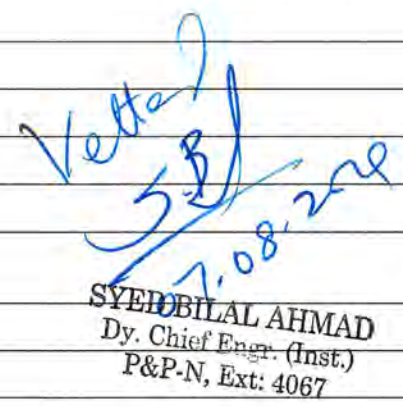 Vetted
S.B
07.08.2020
SYED BILAL AHMAD
Dy. Chief Engr. (Inst.)
P&P-N, Ext: 4067